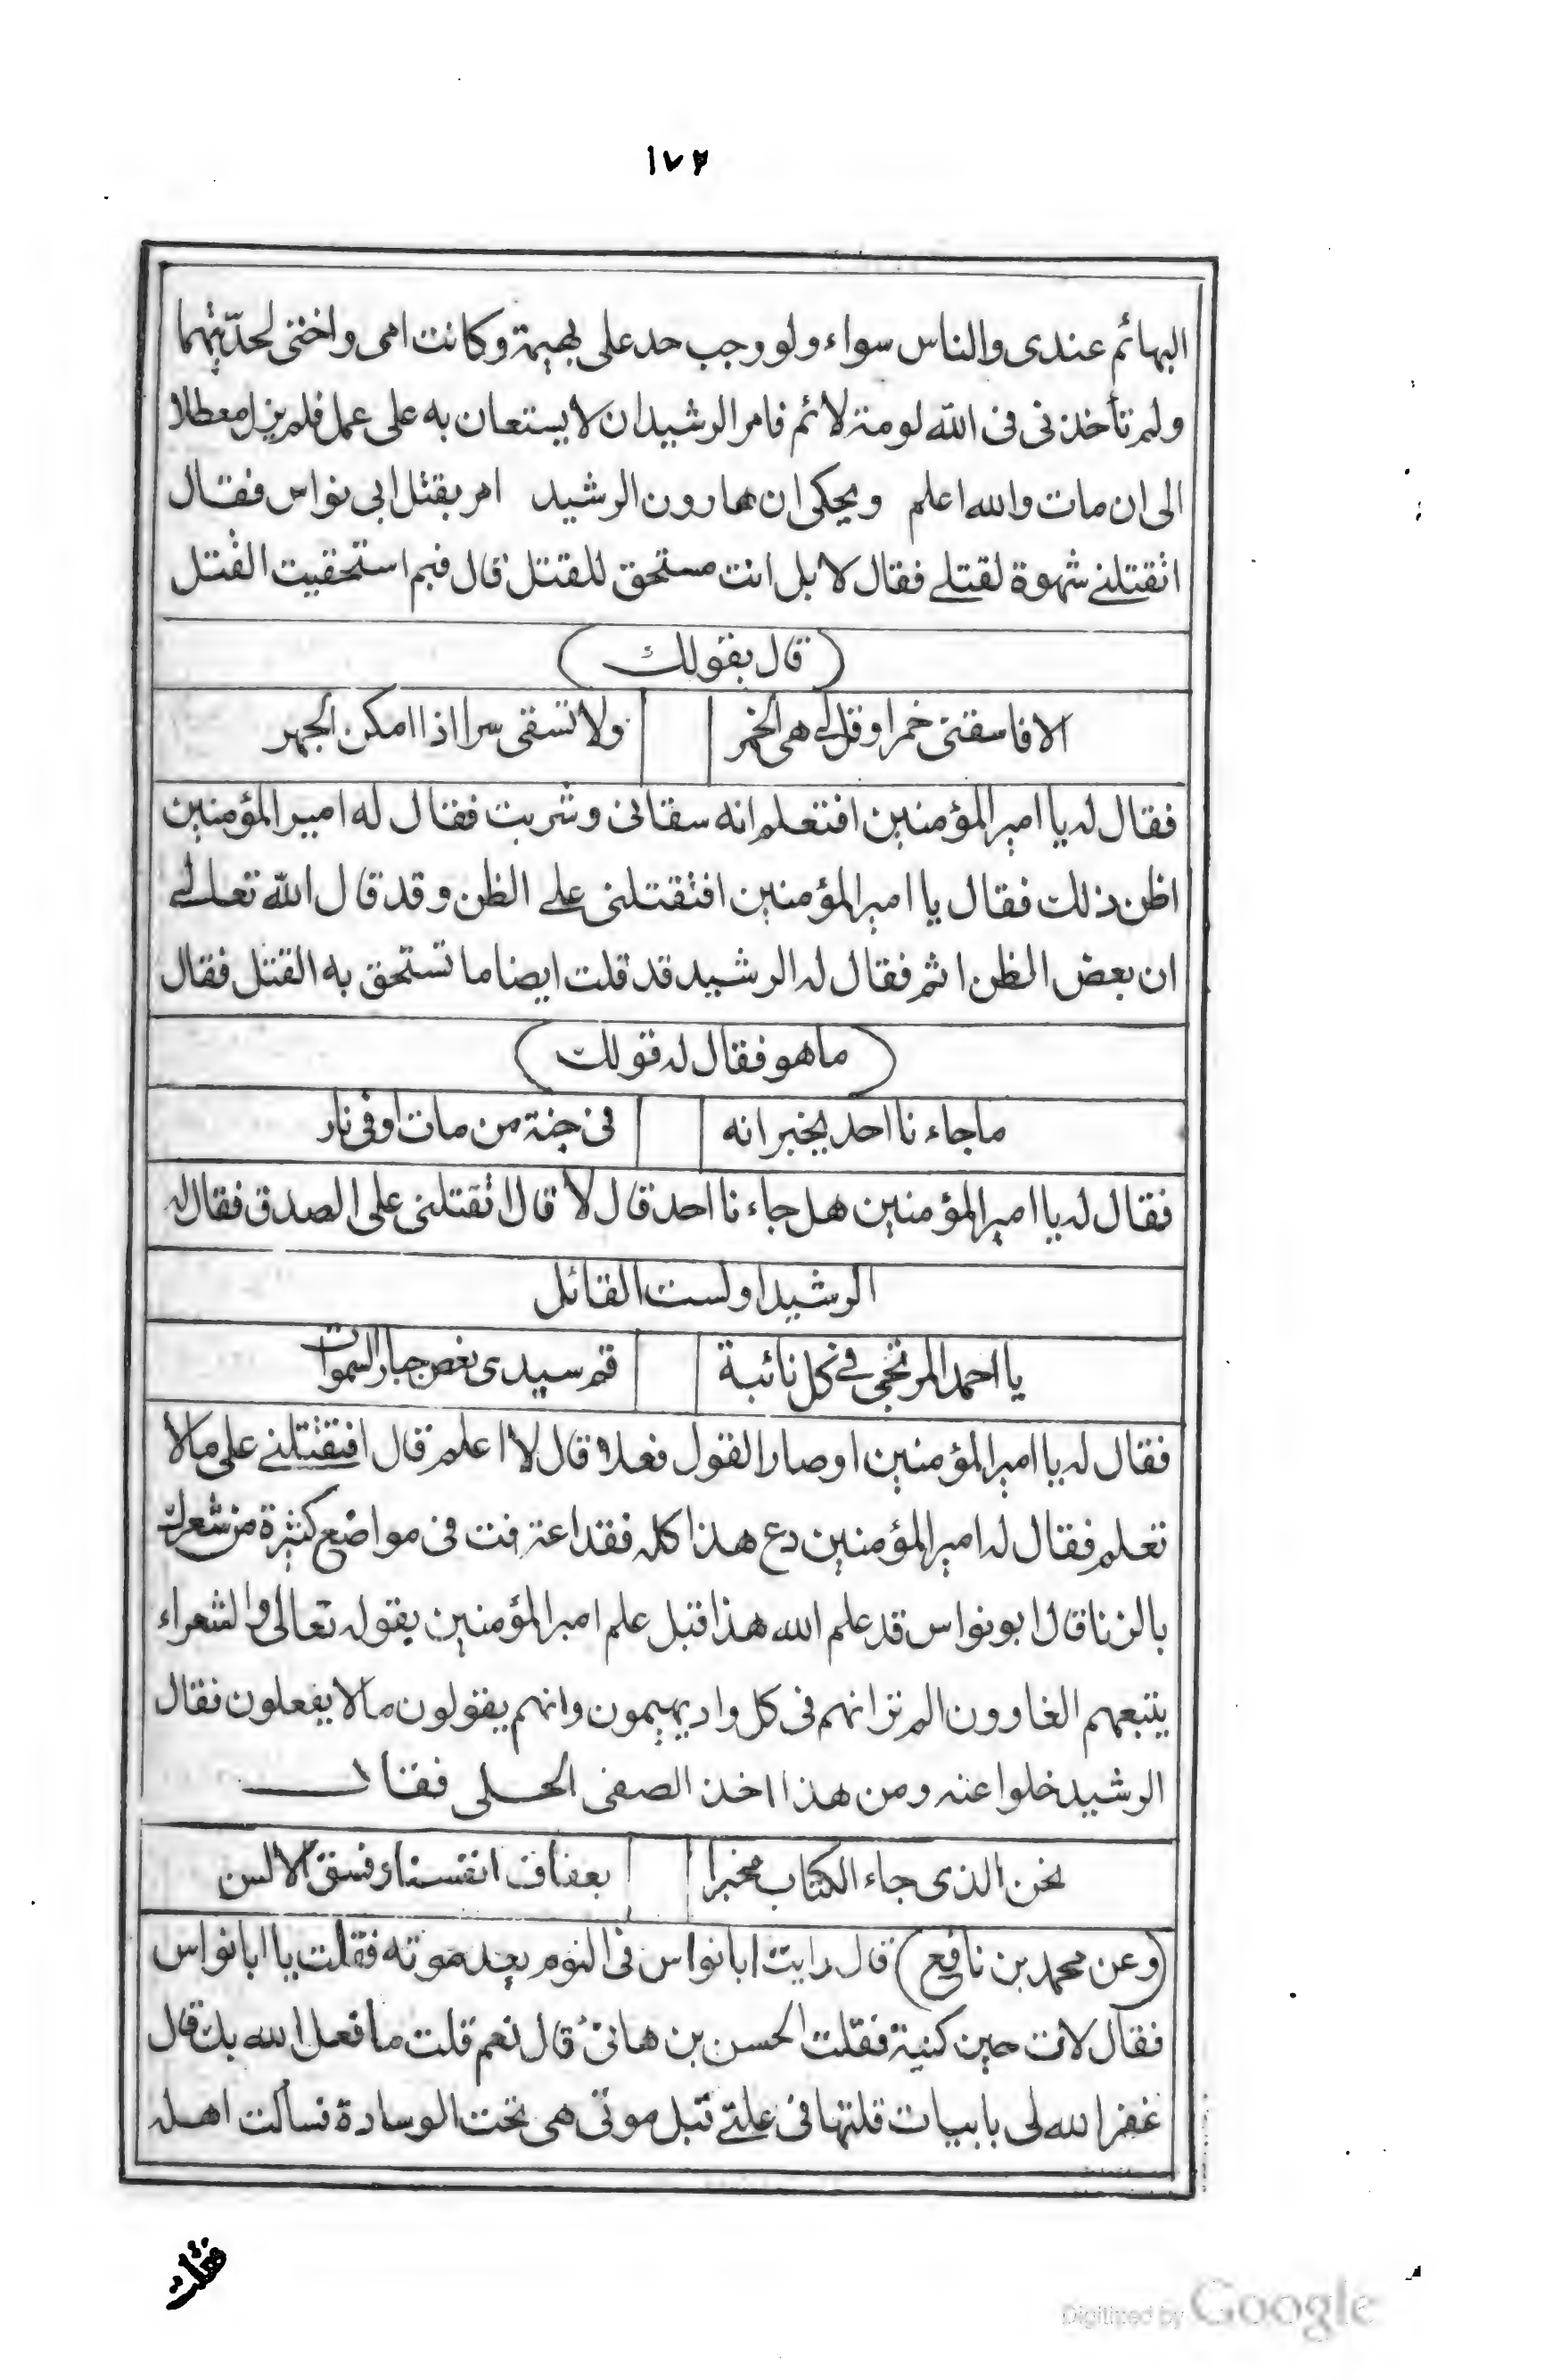 ١٧٢
البهائم عندى والناس سواء ولو وجب حد على بهيمة وكانت امى واختى لحدّيتهما
ولم تأخذنى فى الله لومة لائم فامر الرشيدان لا يستعان به على عمل فلم يزل معطلا
الى ان مات والله اعلم ويحكى ان هارون الرشيد امر بقتل ابى نواس فقال
اتقتلنے شهوة لقتلے فقال لا بل انت مستحق للقتل قال فبم استحقيت القتل
(قال بقولك)
الا فاسقنى خمرا وقل لے هى الخمر ولا تسقى سرا اذا امكن الجهر
فقال له يا امير المؤمنين افتعلم انه سقانى وشربت فقال له امير المؤمنين
اظن ذلك فقال يا امير المؤمنين افتقتلنى علے الظن وقد قال الله تعالے
ان بعض الظن اثم فقال له الرشيد قد قلت ايضا ما تستحق به القتل فقال
(ما هو فقال له قولك)
ما جاء نا احد يخبر انه فى جنة من مات او فى نار
فقال له يا امير المؤمنين هل جاء نا احد قال لا قال اتقتلنى على الصدق فقال له
الرشيد اولست القائل
يا احمد المرتجى فے كل نائبة قم سيدى نعص جبار السموات
فقال له يا امير المؤمنين اوصار القول فعلا قال لا اعلم قال افتقتلنے على مالا
تعلم فقال له امير المؤمنين دع هذا كله فقد اعترفت فى مواضع كثيرة من شعرك
بالزنا قال ابو نواس قد علم الله هذا قبل علم امير المؤمنين بقوله تعالى والشعراء
يتبعهم الغاوون الم تر انهم فى كل واد يهيمون وانهم يقولون مالا يفعلون فقال
الرشيد خلوا عنه ومن هذا اخذ الصفى الحلى فقال
نحن الذى جاء الكتاب مخبرا بعفاف انفسنا وفسق الالسن
(وعن محمد بن نافع) قال رايت ابا نواس فى النوم بعد موته فقلت يا ابا نواس
فقال لات حين كنية فقلت الحسن بن هانئ قال نعم قلت ما فعل الله بك قال
غفر الله لى بابيات قلتها فى علتے قبل موتى هى تحت الوسادة فسالت اهله
فقلت
Digitized by Google